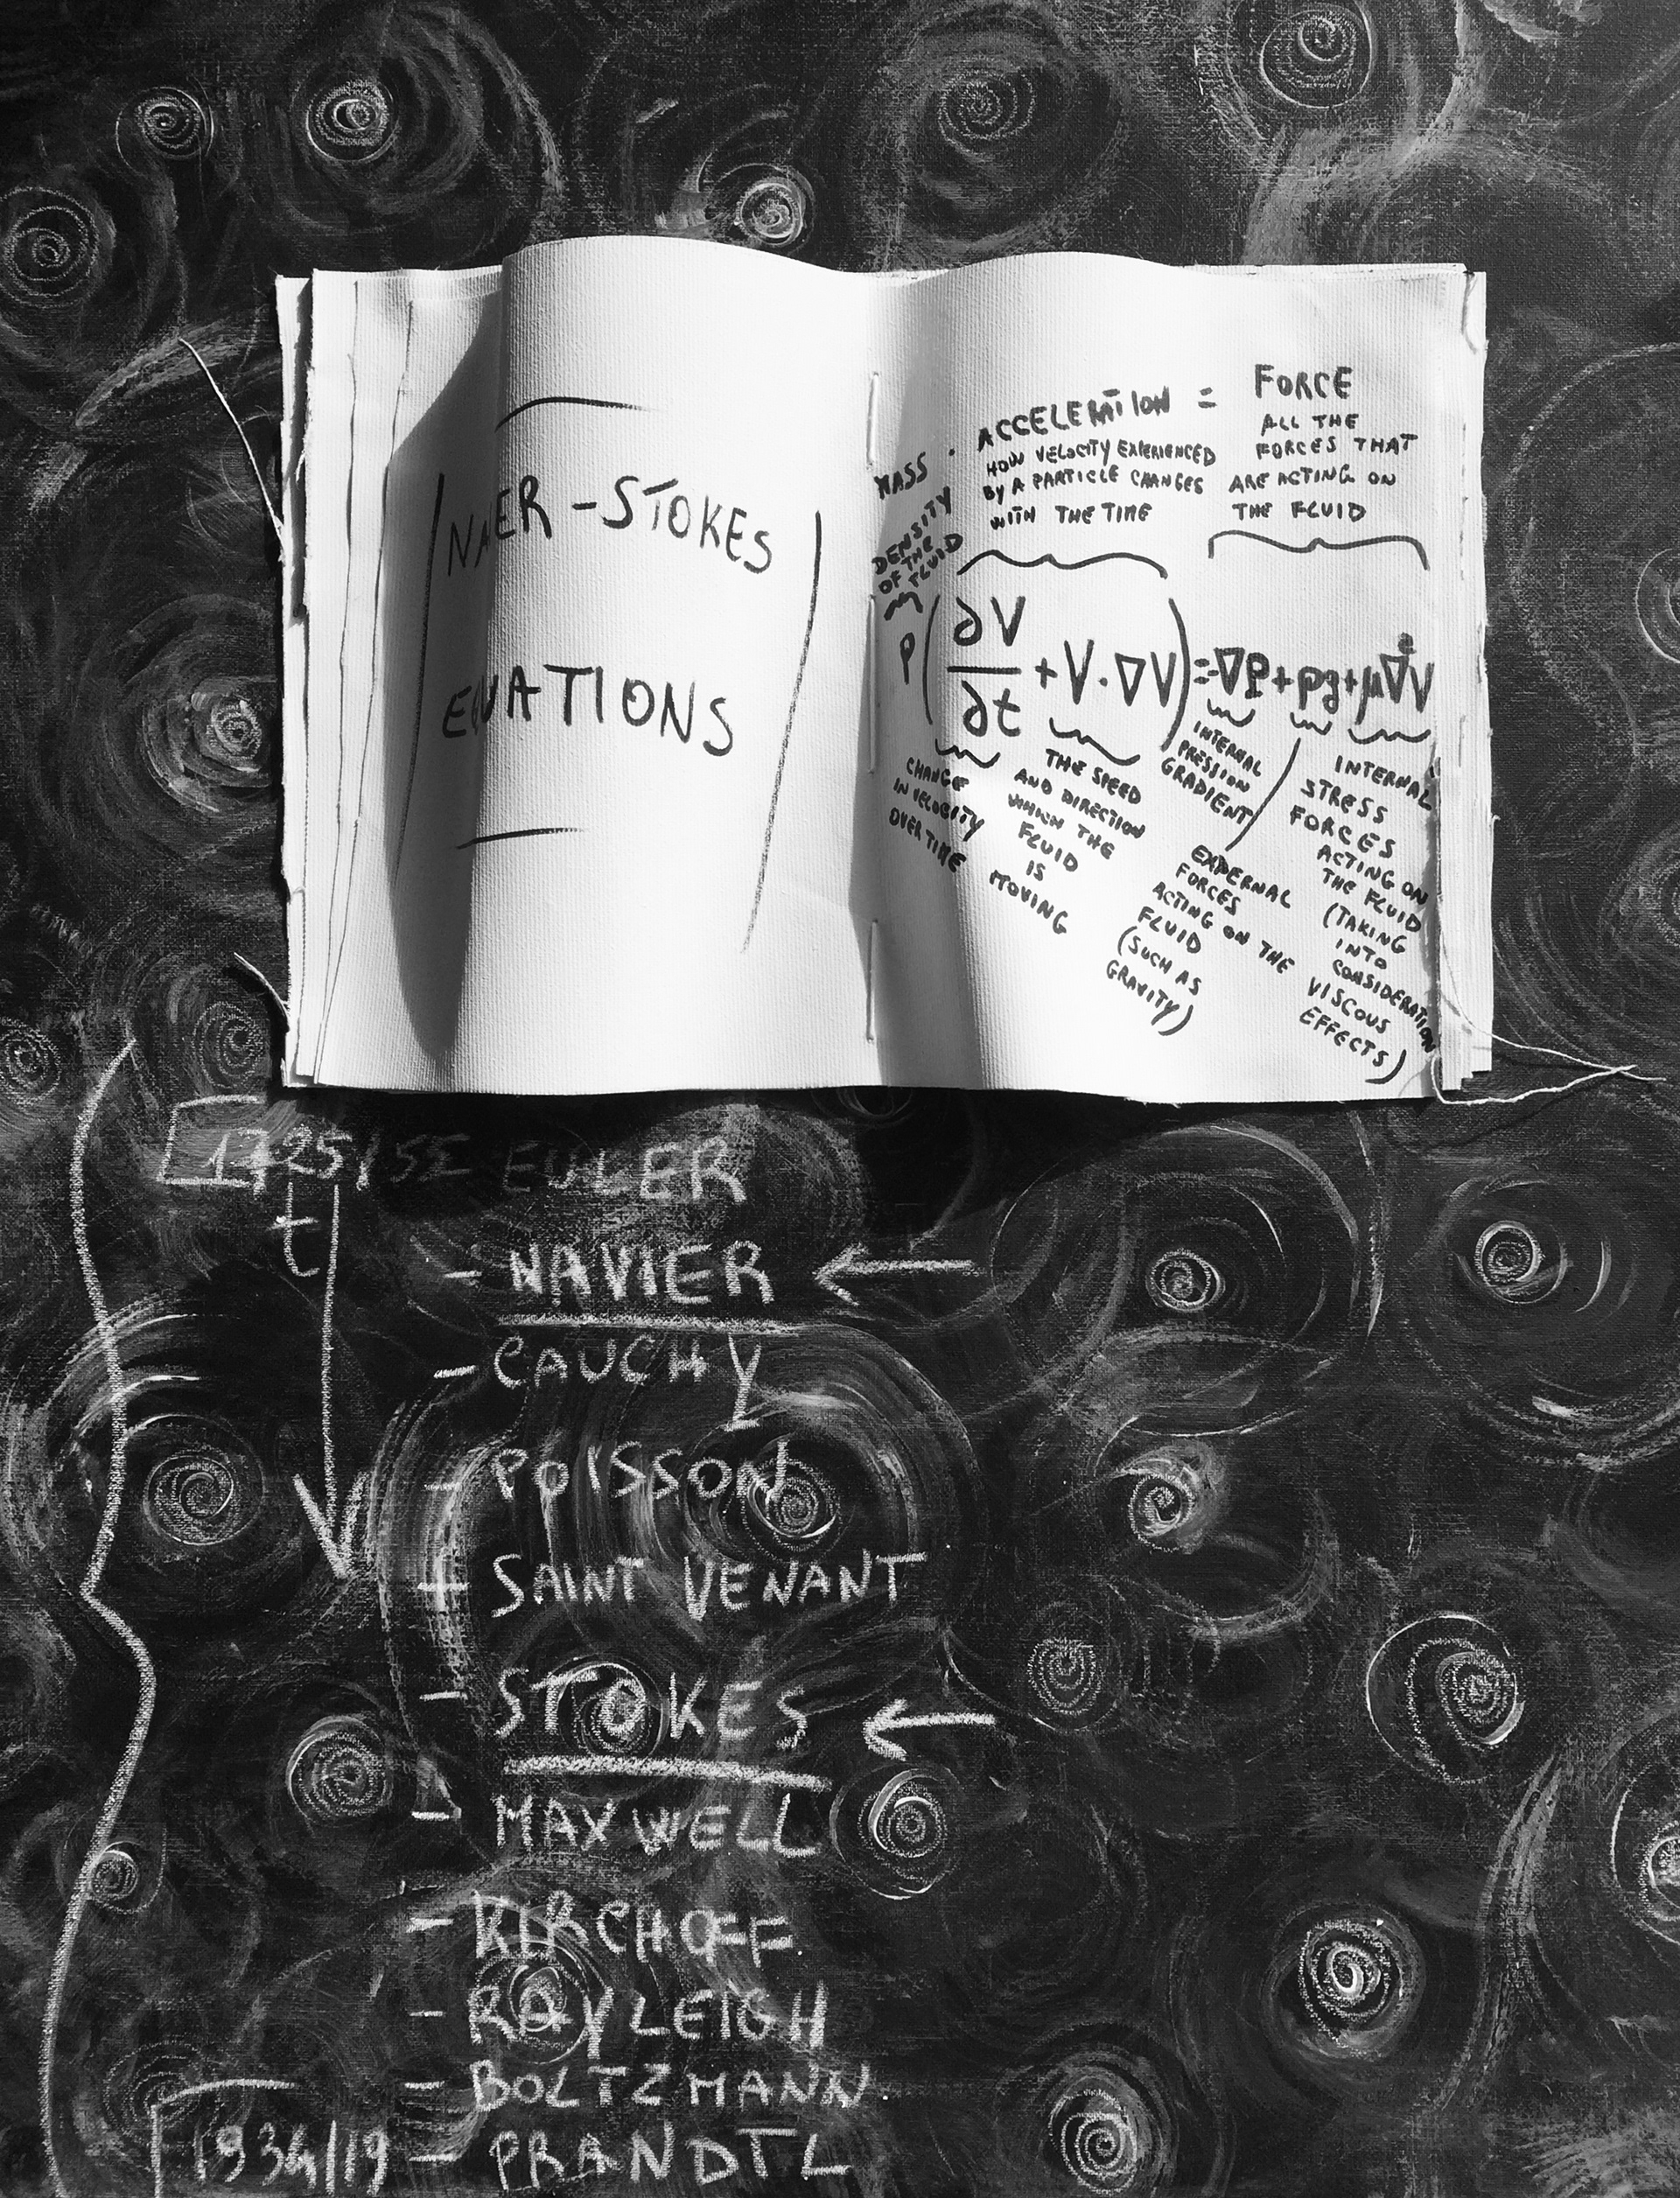 NAVIER-STOKES
EQUATIONS
MASS · ACCELERATION = FORCE
DENSITY
OF THE
FLUID
HOW VELOCITY EXPERIENCED
BY A PARTICLE CHANGES
WITH THE TIME
ALL THE
FORCES THAT
ARE ACTING ON
THE FLUID
ρ(∂V/∂t + V·∇V) = -∇P + ρg + μ∇²V
CHANGE
IN VELOCITY
OVER TIME
THE SPEED
AND DIRECTION
WHICH THE
FLUID
IS
MOVING
INTERNAL
PRESSION
GRADIENT
EXPERNAL
FORCES
ACTING ON THE
FLUID
(SUCH AS
GRAVITY)
INTERNAL
STRESS
FORCES
ACTING ON
THE FLUID
(TAKING
INTO
CONSIDERATION
VISCOUS
EFFECTS)
EULER
t
- NAVIER ←
- CAUCHY
- POISSON
- SAINT VENANT
- STOKES ←
- MAXWELL
- KIRCHOFF
- RAYLEIGH
- BOLTZMANN
1934/19 - PRANDTL